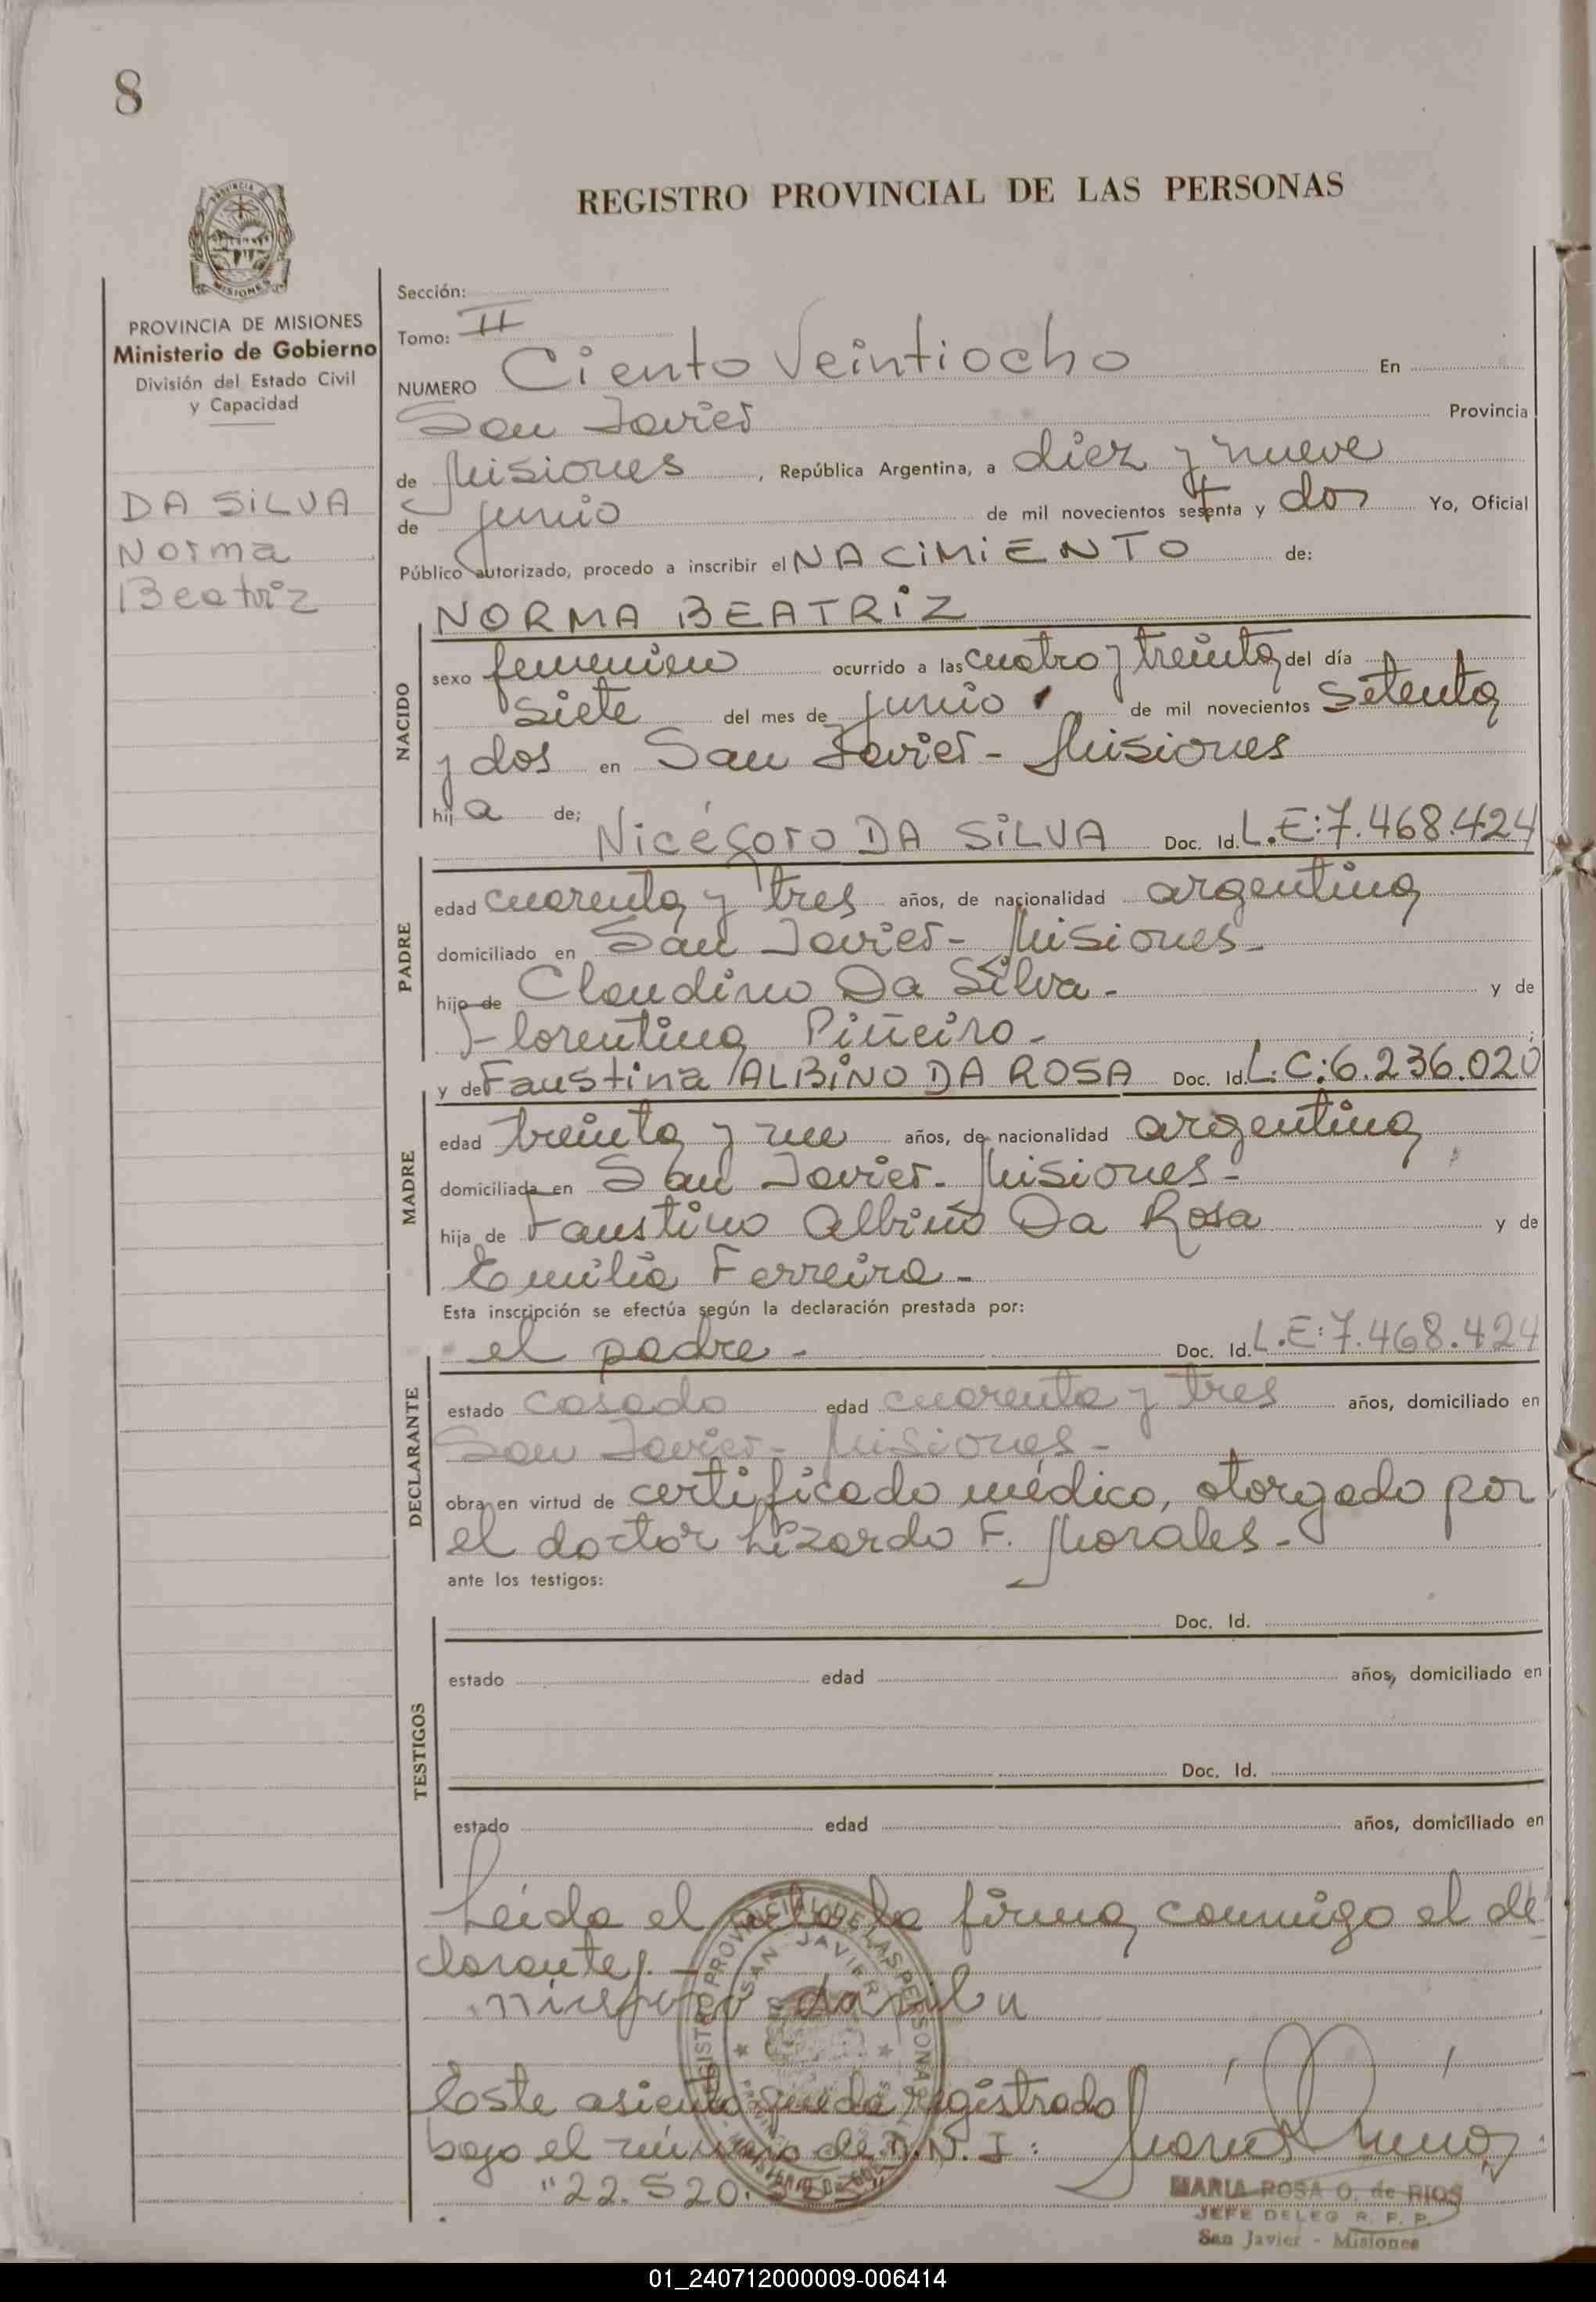 8
REGISTRO PROVINCIAL DE LAS PERSONAS
PROVINCIA DE MISIONES
Ministerio de Gobierno
División del Estado Civil
y Capacidad
DA SILVA
Norma
Beatriz
Sección:
Tomo: II
NUMERO Ciento Veintiocho En
San Javier Provincia
de Misiones, República Argentina, a diez y nueve
de junio de mil novecientos setenta y dos Yo, Oficial
Público autorizado, procedo a inscribir el NACIMIENTO de:
NORMA BEATRIZ
NACIDO
sexo femenino ocurrido a las cuatro y treinta del día
siete del mes de junio de mil novecientos setenta
y dos en San Javier - Misiones
hija de;
Nicéforo DA SILVA Doc. Id. L.E:7.468.424
PADRE
edad cuarenta y tres años, de nacionalidad argentina
domiciliado en San Javier - Misiones -
hijo de Claudino Da Silva - y de
Florentina Piñeiro -
y de Faustina ALBINO DA ROSA Doc. Id. L.C:6.236.020
MADRE
edad treinta y un años, de nacionalidad argentina
domiciliada en San Javier - Misiones -
hija de Faustino Albino Da Rosa y de
Emilia Ferreira -
Esta inscripción se efectúa según la declaración prestada por:
el padre - Doc. Id. L.E:7.468.424
DECLARANTE
estado casado edad cuarenta y tres años, domiciliado en
San Javier - Misiones -
obra en virtud de certificado médico, otorgado por
el doctor Lizardo F. Morales -
ante los testigos:
TESTIGOS
Doc. Id.
estado edad años, domiciliado en
Doc. Id.
estado edad años, domiciliado en
Leida el acta la firma conmigo el de
clarante.-
niceforo da silva
Este asiento queda registrado
bajo el número de D.N.I:
"22.520.
REGISTRO PROVINCIAL DE LAS PERSONAS
SAN JAVIER
MARIA ROSA O. de RIOS
JEFE DELEG R. P. P.
San Javier - Misiones
01_240712000009-006414